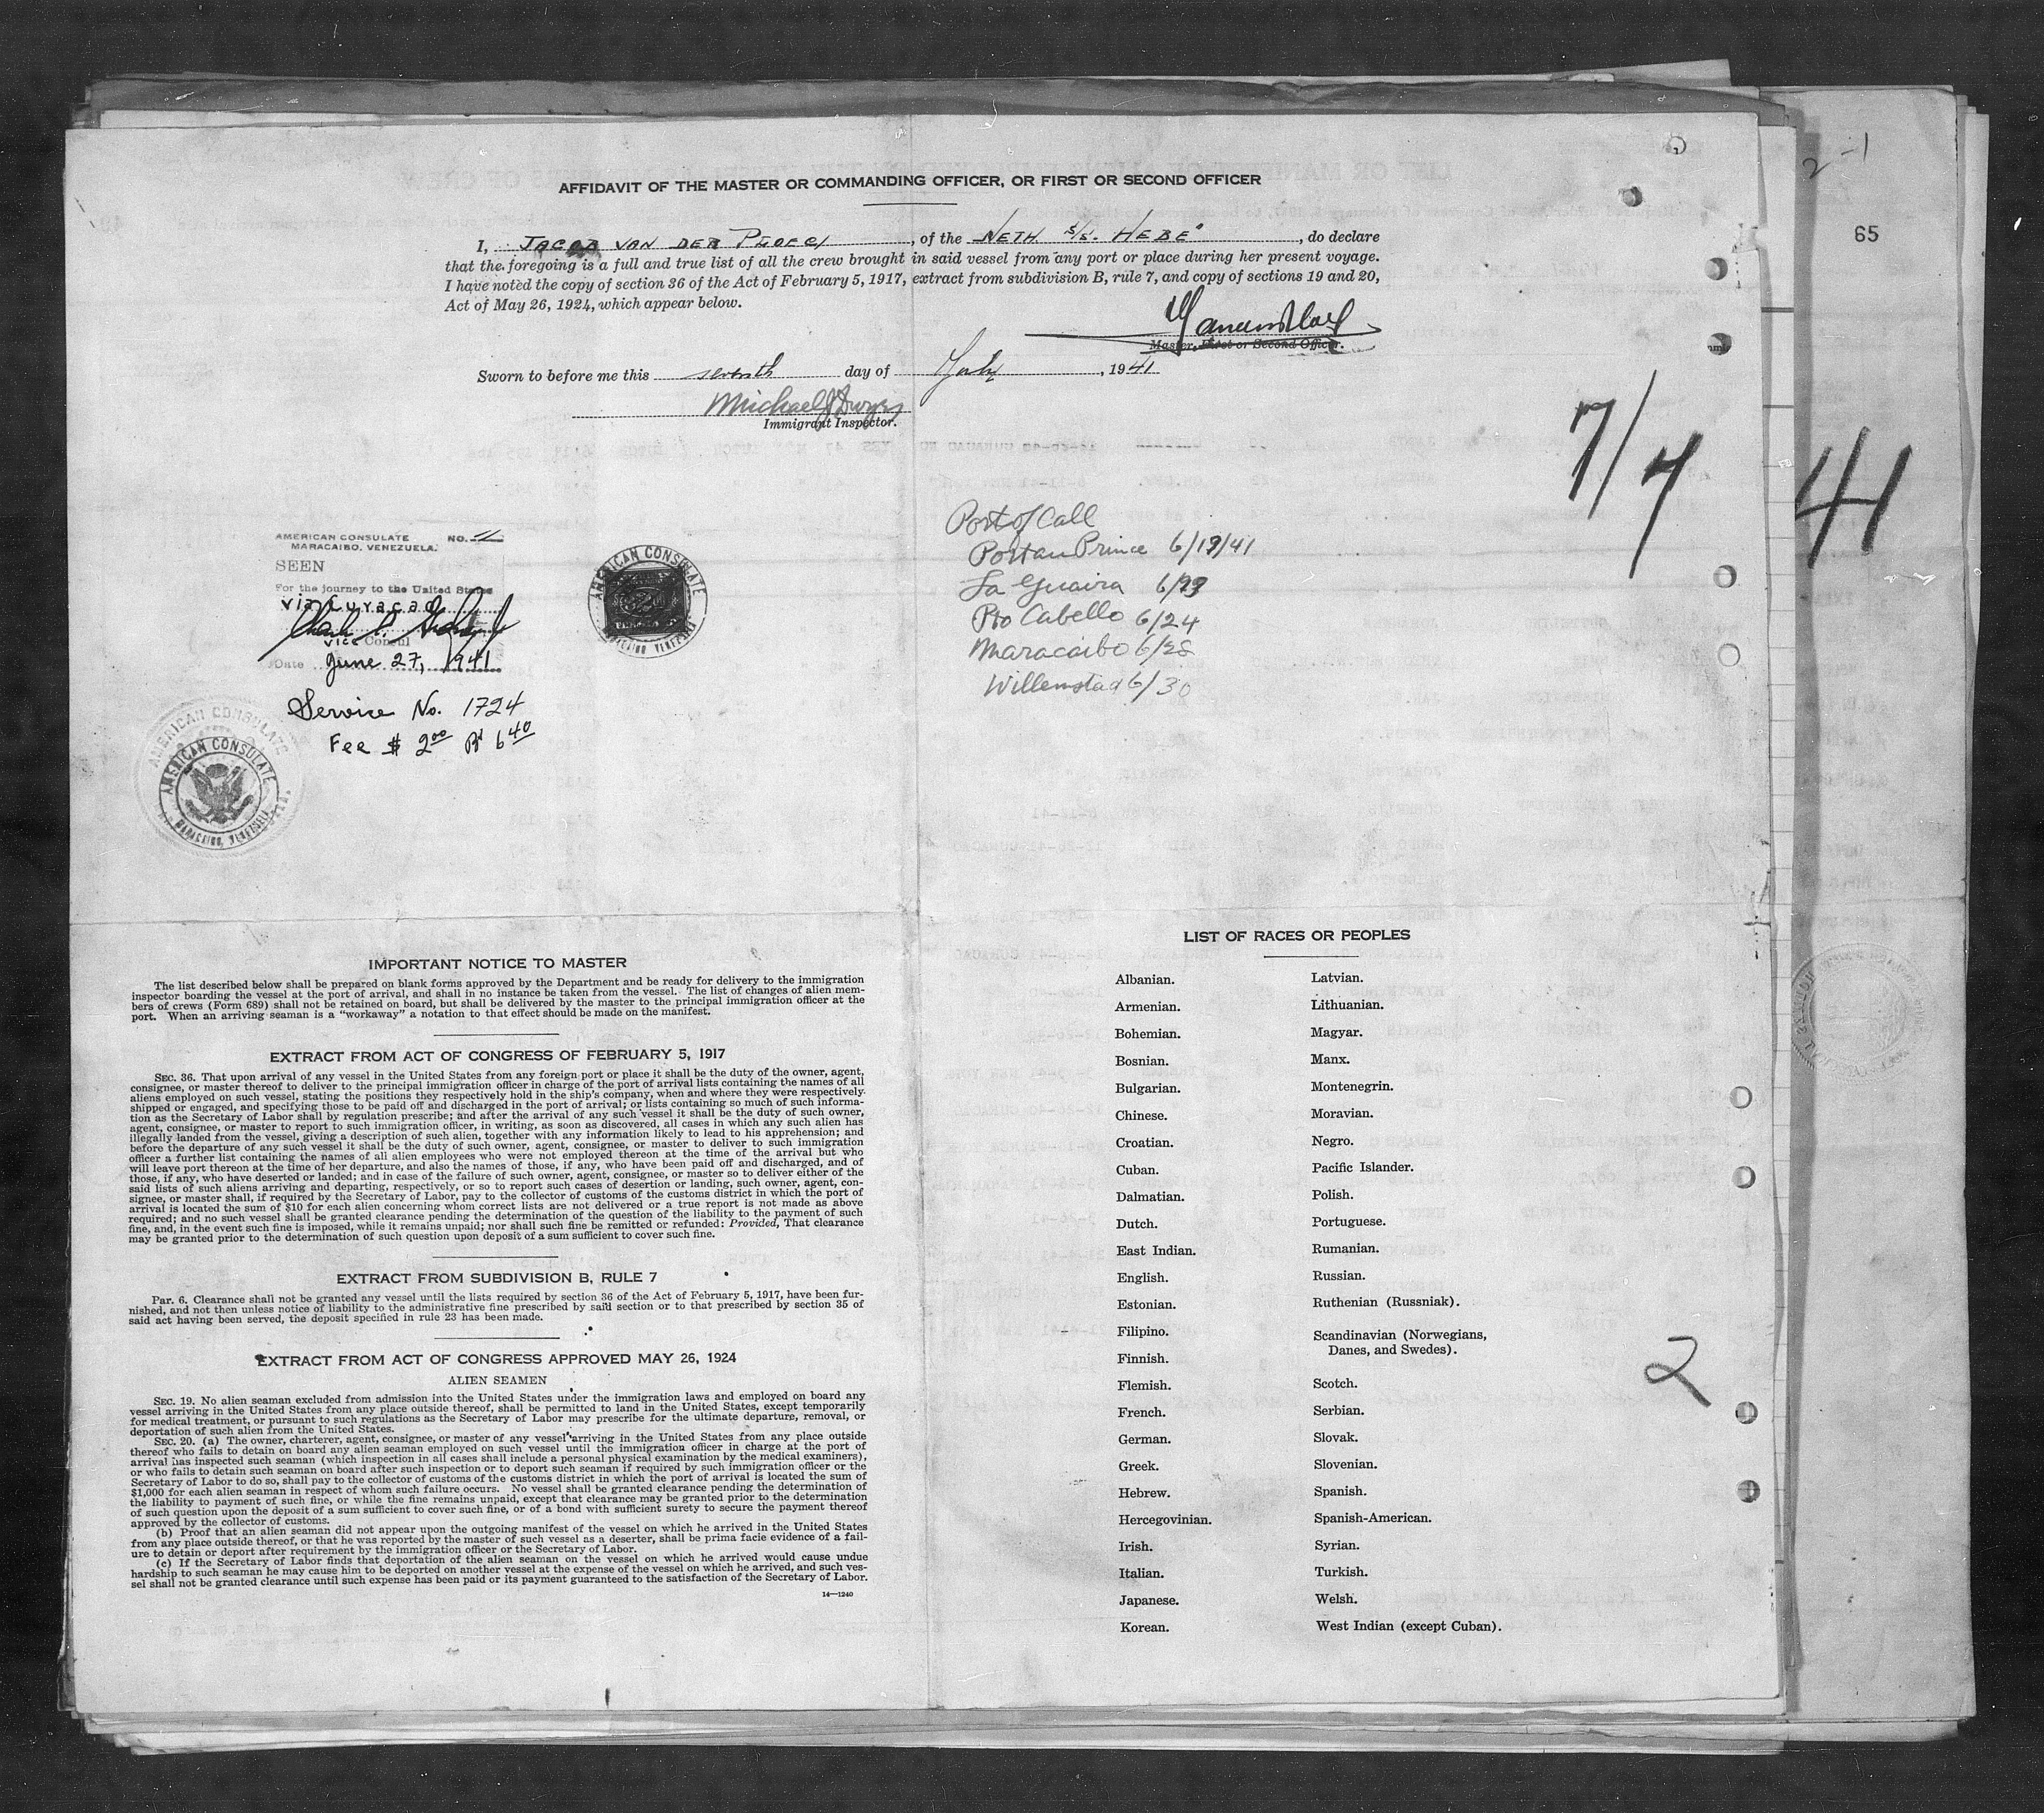 2-1
65
AFFIDAVIT OF THE MASTER OR COMMANDING OFFICER, OR FIRST OR SECOND OFFICER
I, JACOB VAN DER PLOEG, of the NETH S/S. HEBE", do declare
that the foregoing is a full and true list of all the crew brought in said vessel from any port or place during her present voyage.
I have noted the copy of section 36 of the Act of February 5, 1917, extract from subdivision B, rule 7, and copy of sections 19 and 20,
Act of May 26, 1924, which appear below.
Master, First or Second Officer.
Sworn to before me this seventh day of July, 1941
Michael J Dwyer
Immigrant Inspector.
7/7
41
AMERICAN CONSULATE NO.
MARACAIBO, VENEZUELA.
SEEN
For the journey to the United States
via Curacao
Vice Consul
Date June 27, 1941
Service No. 1724
Fee $ 2.00 Bs 6.40
AMERICAN CONSULATE
MARACAIBO, VENEZUELA
AMERICAN CONSULATE
MARACAIBO, VENEZUELA
Port of Call
Port au Prince 6/19/41
La Guaira 6/23
Pto Cabello 6/24
Maracaibo 6/28
Willemstad 6/30
IMPORTANT NOTICE TO MASTER
The list described below shall be prepared on blank forms approved by the Department and be ready for delivery to the immigration
inspector boarding the vessel at the port of arrival, and shall in no instance be taken from the vessel. The list of changes of alien mem-
bers of crews (Form 689) shall not be retained on board, but shall be delivered by the master to the principal immigration officer at the
port. When an arriving seaman is a "workaway" a notation to that effect should be made on the manifest.
EXTRACT FROM ACT OF CONGRESS OF FEBRUARY 5, 1917
SEC. 36. That upon arrival of any vessel in the United States from any foreign port or place it shall be the duty of the owner, agent,
consignee, or master thereof to deliver to the principal immigration officer in charge of the port of arrival lists containing the names of all
aliens employed on such vessel, stating the positions they respectively hold in the ship's company, when and where they were respectively
shipped or engaged, and specifying those to be paid off and discharged in the port of arrival; or lists containing so much of such informa-
tion as the Secretary of Labor shall by regulation prescribe; and after the arrival of any such vessel it shall be the duty of such owner,
agent, consignee, or master to report to such immigration officer, in writing, as soon as discovered, all cases in which any such alien has
illegally landed from the vessel, giving a description of such alien, together with any information likely to lead to his apprehension; and
before the departure of any such vessel it shall be the duty of such owner, agent, consignee, or master to deliver to such immigration
officer a further list containing the names of all alien employees who were not employed thereon at the time of the arrival but who
will leave port thereon at the time of her departure, and also the names of those, if any, who have been paid off and discharged, and of
those, if any, who have deserted or landed; and in case of the failure of such owner, agent, consignee, or master so to deliver either of the
said lists of such aliens arriving and departing, respectively, or so to report such cases of desertion or landing, such owner, agent, con-
signee, or master shall, if required by the Secretary of Labor, pay to the collector of customs of the customs district in which the port of
arrival is located the sum of $10 for each alien concerning whom correct lists are not delivered or a true report is not made as above
required; and no such vessel shall be granted clearance pending the determination of the question of the liability to the payment of such
fine, and, in the event such fine is imposed, while it remains unpaid; nor shall such fine be remitted or refunded: Provided, That clearance
may be granted prior to the determination of such question upon deposit of a sum sufficient to cover such fine.
EXTRACT FROM SUBDIVISION B, RULE 7
Par. 6. Clearance shall not be granted any vessel until the lists required by section 36 of the Act of February 5, 1917, have been fur-
nished, and not then unless notice of liability to the administrative fine prescribed by said section or to that prescribed by section 35 of
said act having been served, the deposit specified in rule 23 has been made.
EXTRACT FROM ACT OF CONGRESS APPROVED MAY 26, 1924
ALIEN SEAMEN
SEC. 19. No alien seaman excluded from admission into the United States under the immigration laws and employed on board any
vessel arriving in the United States from any place outside thereof, shall be permitted to land in the United States, except temporarily
for medical treatment, or pursuant to such regulations as the Secretary of Labor may prescribe for the ultimate departure, removal, or
deportation of such alien from the United States.
SEC. 20. (a) The owner, charterer, agent, consignee, or master of any vessel arriving in the United States from any place outside
thereof who fails to detain on board any alien seaman employed on such vessel until the immigration officer in charge at the port of
arrival has inspected such seaman (which inspection in all cases shall include a personal physical examination by the medical examiners),
or who fails to detain such seaman on board after such inspection or to deport such seaman if required by such immigration officer or the
Secretary of Labor to do so, shall pay to the collector of customs of the customs district in which the port of arrival is located the sum of
$1,000 for each alien seaman in respect of whom such failure occurs. No vessel shall be granted clearance pending the determination of
the liability to payment of such fine, or while the fine remains unpaid, except that clearance may be granted prior to the determination
of such question upon the deposit of a sum sufficient to cover such fine, or of a bond with sufficient surety to secure the payment thereof
approved by the collector of customs.
(b) Proof that an alien seaman did not appear upon the outgoing manifest of the vessel on which he arrived in the United States
from any place outside thereof, or that he was reported by the master of such vessel as a deserter, shall be prima facie evidence of a fail-
ure to detain or deport after requirement by the immigration officer or the Secretary of Labor.
(c) If the Secretary of Labor finds that deportation of the alien seaman on the vessel on which he arrived would cause undue
hardship to such seaman he may cause him to be deported on another vessel at the expense of the vessel on which he arrived, and such ves-
sel shall not be granted clearance until such expense has been paid or its payment guaranteed to the satisfaction of the Secretary of Labor.
14—1240
LIST OF RACES OR PEOPLES
Albanian.
Armenian.
Bohemian.
Bosnian.
Bulgarian.
Chinese.
Croatian.
Cuban.
Dalmatian.
Dutch.
East Indian.
English.
Estonian.
Filipino.
Finnish.
Flemish.
French.
German.
Greek.
Hebrew.
Hercegovinian.
Irish.
Italian.
Japanese.
Korean.
Latvian.
Lithuanian.
Magyar.
Manx.
Montenegrin.
Moravian.
Negro.
Pacific Islander.
Polish.
Portuguese.
Rumanian.
Russian.
Ruthenian (Russniak).
Scandinavian (Norwegians,
Danes, and Swedes).
Scotch.
Serbian.
Slovak.
Slovenian.
Spanish.
Spanish-American.
Syrian.
Turkish.
Welsh.
West Indian (except Cuban).
2